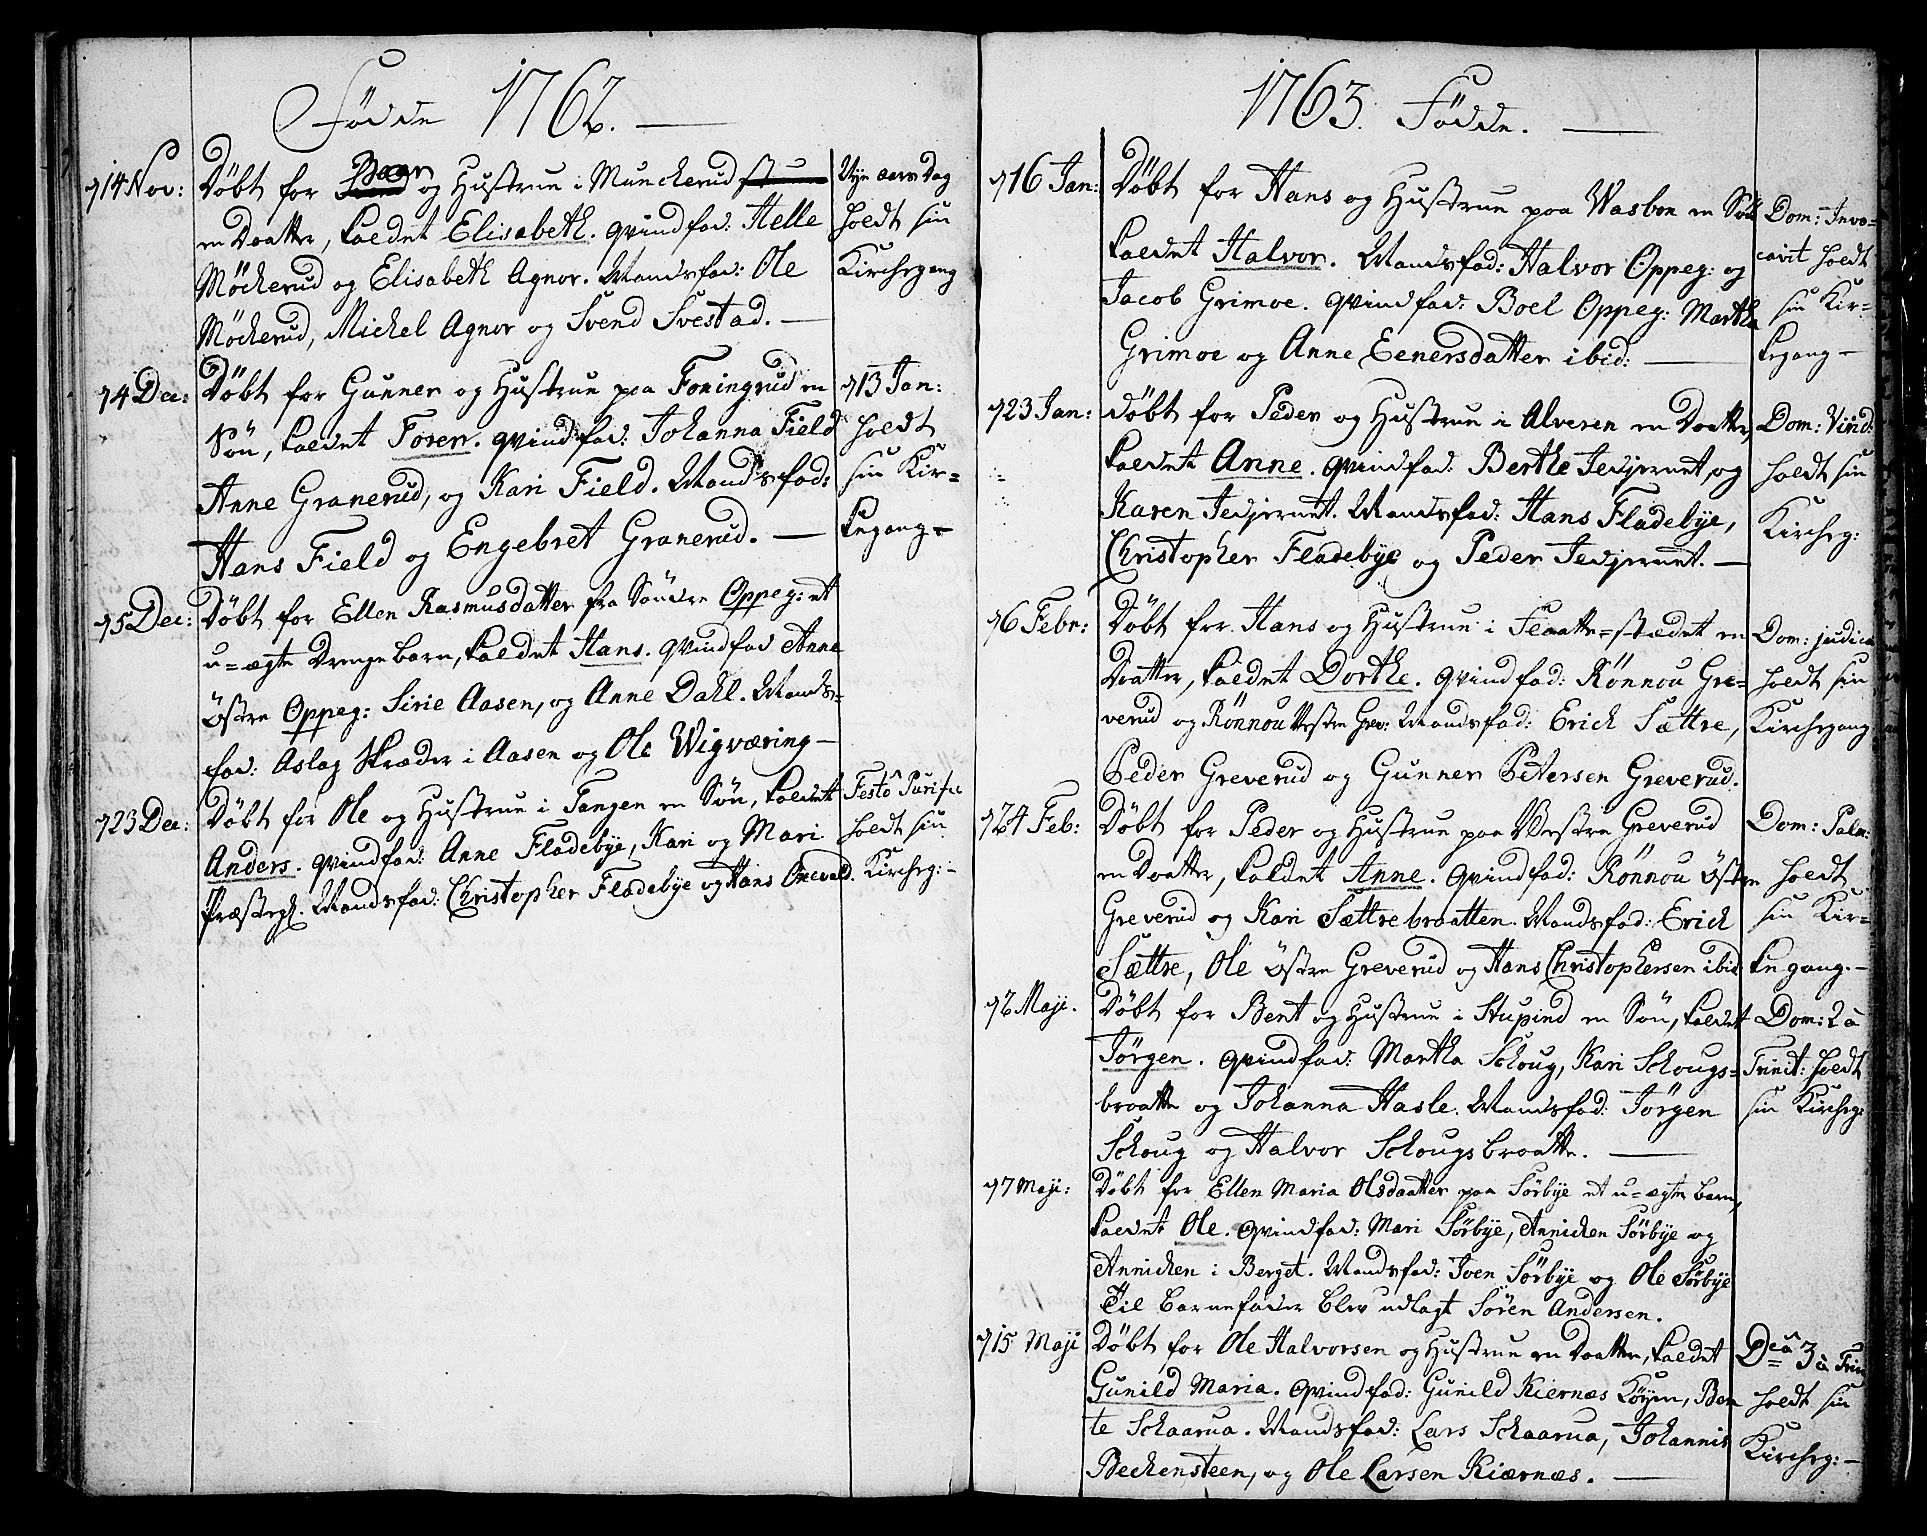 Födde 1762.
14 Nov:
Döbt for og Hustrue i Munckerud
en Daatter, kaldet Elisabeth. Qvindfad: Helle
Möckerud og Elisabeth Agnor. Mandsfad: Ole
Möckerud, Michel Agnor og Svend Svestad.
Nÿe aars Dag
holdt sin
Kirchegang
4 Dec:
Döbt for Gunner og Hustrue paa Foningrud en
Sön, kaldet Foren. Qvindfad: Johanna Field
Anne Granerud, og Kari Field. Mandsfad:
Hans Field og Engebret Granerud.
13 Jan:
holdt
sin Kir-
kegang
5 Dec:
Döbt for Ellen Rasmusdatter fra Söndre Oppeg: et
u-ægte Drengebarn, kaldet Hans. Qvindfad Anna
Östre Oppeg: Sirie Aasen, og Anne Dahl. Mands-
fad: Aslag Skræder i Aasen og Ole Wigværing
23 Dec:
Döbt for Ole og Hustrue i Tangen en Sön, kaldet
Anders. Qvindfad: Anne Fladebÿe, Kari og Mari
Præstegl. Mandsfad: Christopher Fladebÿe og Hans Onevald.
Festo Purific
holdt sin
Kircheg:
1763. Födde.
16 Jan:
Döbt for Hans og Hustrue paa Wasbon en Sön
kaldet Halvor. Mandsfad: Halvor Oppeg: og
Jacob Grimoe. Qvindfad: Boel Oppeg: Martha
Grimoe og Anne Eenersdatter ibid:
Dom: Invo-
cavit holdt
sin Kir-
kegang
23 Jan:
Döbt for Peder og Hustrue i Alveren en Daatter,
kaldet Anne. Qvindfad: Berthe Tedjernet, og
Karen Tedjernet. Mandsfad: Hans Fladebÿe,
Christopher Fladebÿe og Peder Tedjernet.
Dom: Vind:
holdt sin
Kircheg:
6 Febr:
Döbt for Hans og Hustrue i Flaatte-stædet en
Daatter, kaldet Dorthe. Qvindfad: Rönnou Gre-
verud og Rönnou Vestre Grev: Mandsfad: Erich Sættre,
Peder Greverud og Gunner Petersen Greverud.
Dom: judica
holdt sin
Kirchegang
24 Feb:
Döbt for Peder og Hustrue paa Vestre Greverud
en Daatter, kaldet Anne. Qvindfad: Rönnou Östre
Greverud og Kari Sættrebraatten. Mandsfad: Erich
Sættre, Ole Östre Greverud og Hans Christophersen ibid
Dom: Palm:
holdt
sin Kir-
kegang.
2 Maji.
Döbt for Bent og Hustrue i Stupind en Sön, kaldet
Jörgen. Qvindfad: Martha Schoug, Kari Schougs-
braatte og Johanna Hasle. Mandsfad: Jörgen
Schoug og Halvor Schougsbraatte.
Dom: 2 a
Trinit: holdt
sin Kircheg:
7 Maji:
Döbt for Ellen Maria Olsdaatter paa Sörbÿe et u-ægte Barn,
kaldet Ole. Qvindfad: Mari Sörbÿe, Annichen Sörbÿe og
Annichen i Berget. Mandsfad: Iven Sörbÿe og Ole Sörbÿe
Til Barnefader blev udlagt Sören Andersen.
15 Maji
Döbt for Ole Halvorsen og Hustrue en Daatter, kaldet
Gunild Maria. Qvindfad: Gunild Kiernæs Köÿen, Ben
te Schaarua. Mandsfad: Lars Schaarua, Johannis
Bechensteen, og Ole Larsen Kiærnæs.
3 a Trin
holdt sin
Kircheg: